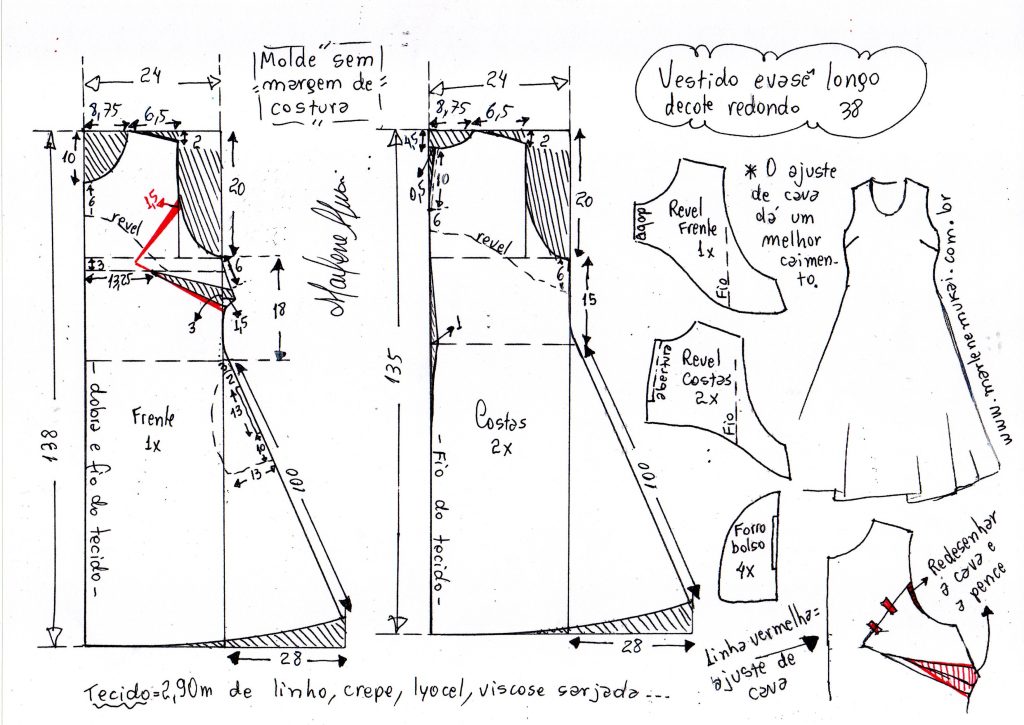 Molde sem
margem de
costura
Vestido evasê longo
decote redondo 38
24
8,75 6,5
2
10
20
6
1,5
revel
3
13,25
6
3
1,5
18
138
dobra e fio do tecido
Frente
1x
3
2
4
13
10
13
100
28
Marlene Mukai
24
8,75 6,5
4,5
2
0,5
10
20
6
revel
6
15
1
135
Costas
2x
Fio do tecido
100
28
dobra
Revel
Frente
1x
Fio
* O ajuste
de cava
dá um
melhor
caimen-
to.
abertura
Revel
Costas
2x
Fio
Forro
bolso
4x
www.marlenemukai.com.br
Linha vermelha=
ajuste de
cava
Redesenhar
a cava e
a pence
Tecido=2,90m de linho, crepe, lyocel, viscose sarjada...